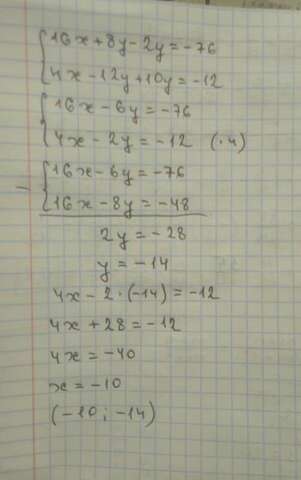 16x+8y-2y=-76
4x-12y+10y=-12
16x-6y=-76
4x-2y=-12 (·4)
16x-6y=-76
16x-8y=-48
2y=-28
y=-14
4x-2·(-14)=-12
4x+28=-12
4x=-40
x=-10
(-10;-14)